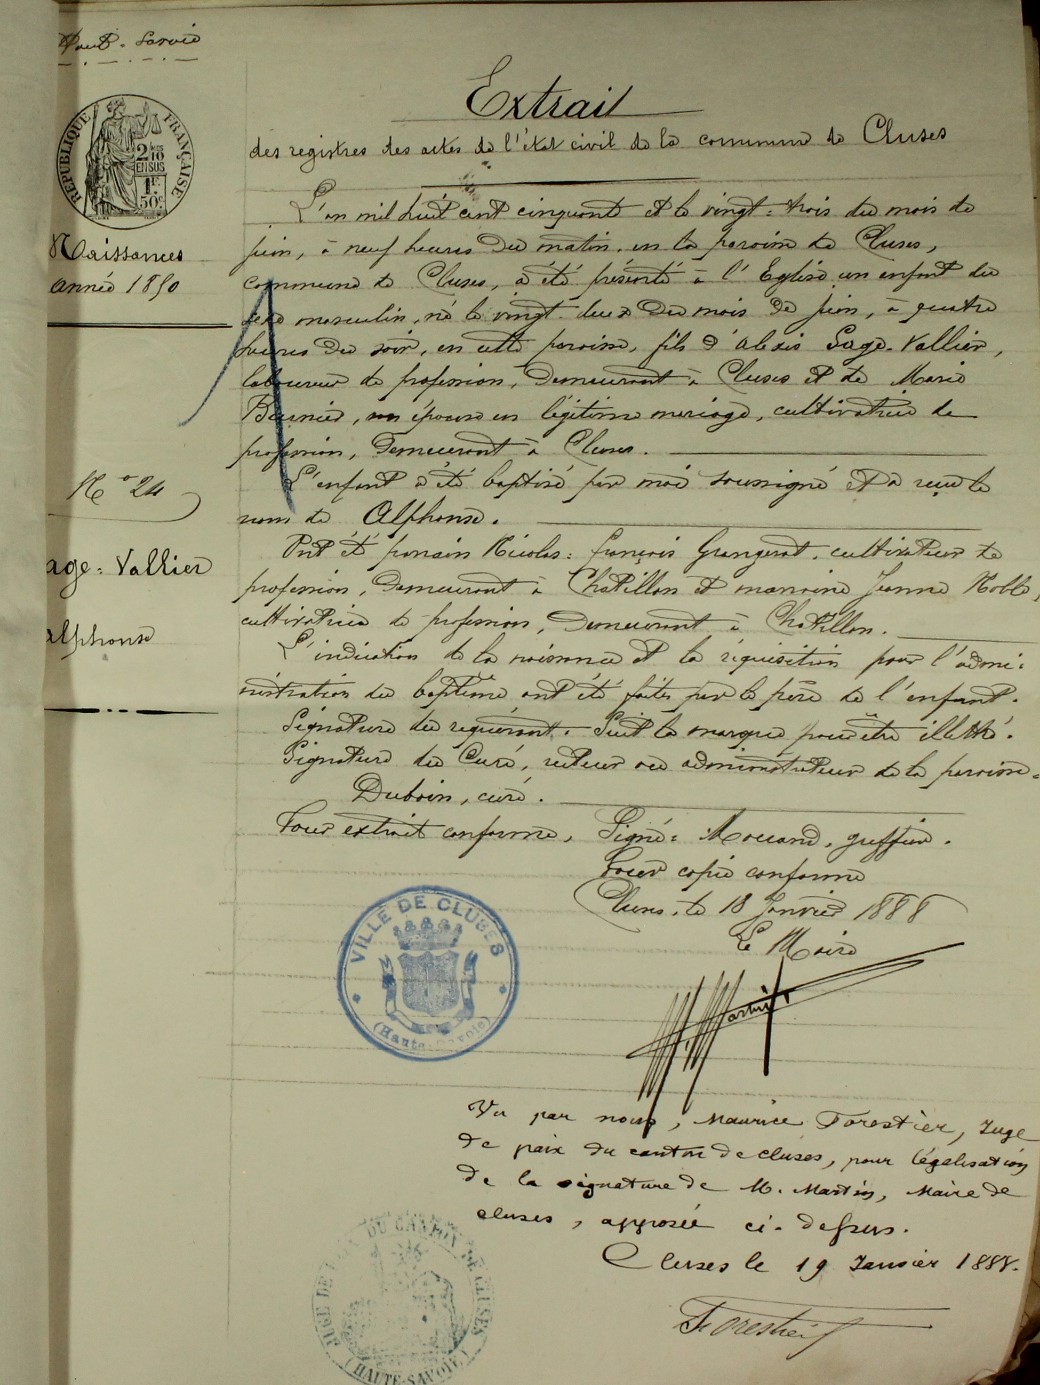 Haute-Savoie
RÉPUBLIQUE FRANÇAISE
2/10 EN SUS
1F. 50C.
Naissances
année 1850
N° 24
age-Vallier
alphonse
Extrait
des registres des actes de l'état civil de la commune de Cluses
L'an mil huit cent cinquante et le vingt-trois du mois de
juin, à neuf heures du matin, en la paroisse de Cluses,
commune de Cluses, a été présenté à l'Eglise un enfant du
sexe masculin, né le vingt-deux du mois de juin, à quatre
heures du soir, en cette paroisse, fils d'alexis Sage-Vallier,
laboureur de profession, demeurant à Cluses et de Marie
son épouse en légitime mariage, cultivatrice de
profession, demeurant à Cluses.
L'enfant a été baptisé par moi soussigné et a reçu le
nom de Alphonse.
Ont été parrain Nicolas-françois Grangerat, cultivateur de
profession, demeurant à Chatillon et marraine Jeanne
cultivatrice de profession, demeurant à Chatillon.
L'indication de la naissance et la réquisition pour l'admi-
nistration du baptême ont été faites par le père de l'enfant.
Signature du requérant. Suit la marque pour être illettré.
Signature du Curé, recteur ou administrateur de la paroisse.
Duboin, curé.
Pour extrait conforme, Signé: greffier.
Pour copie conforme
Cluses, le 18 Janvier 1888
Le Maire
Martin
VILLE DE CLUSES
(Haute-Savoie)
Vu par nous, Maurice Forestier, Juge
de paix du canton de Cluses, pour légalisation
de la signature de M. Martin, Maire de
Cluses, apposée ci-dessus.
Cluses le 19 Janvier 1888.
Forestier
JUGE DE PAIX DU CANTON DE CLUSES
(HAUTE-SAVOIE)